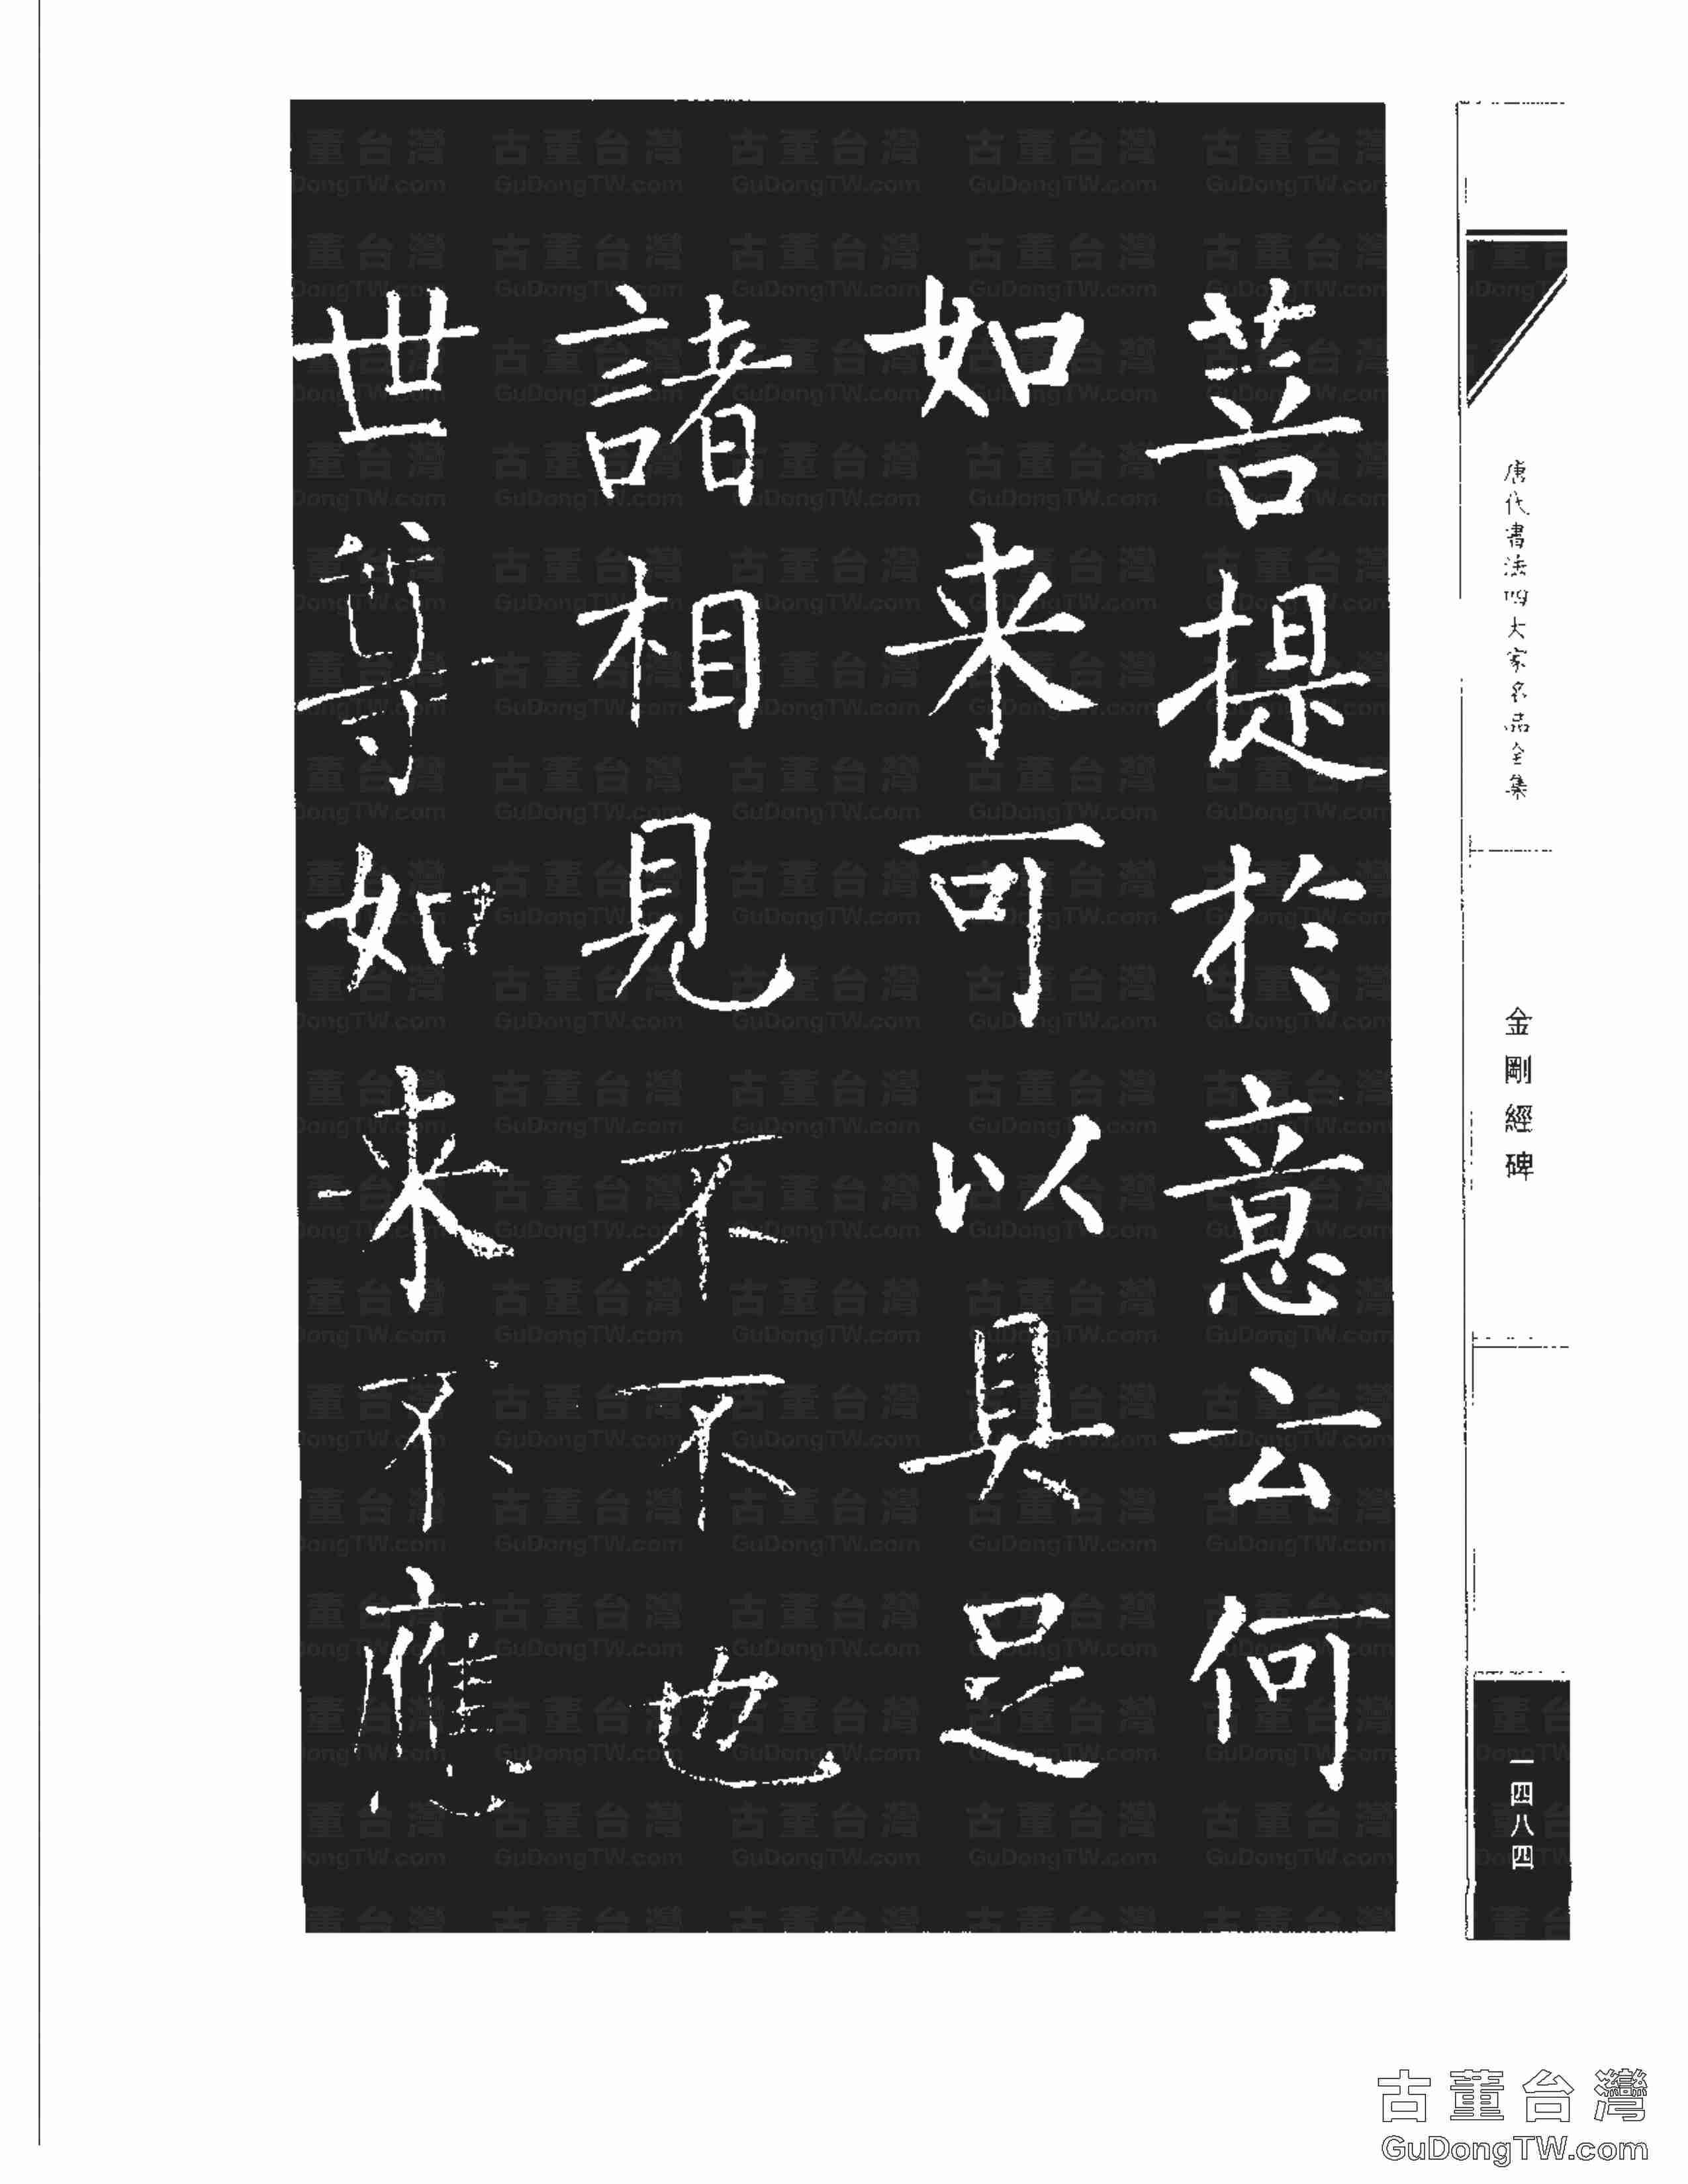 菩提於意云何
如来可以具足
諸相見不不也
世尊如来不應
唐代書法四大家名品全集
金剛經碑
一四八四
古董台灣
GuDongTW.com